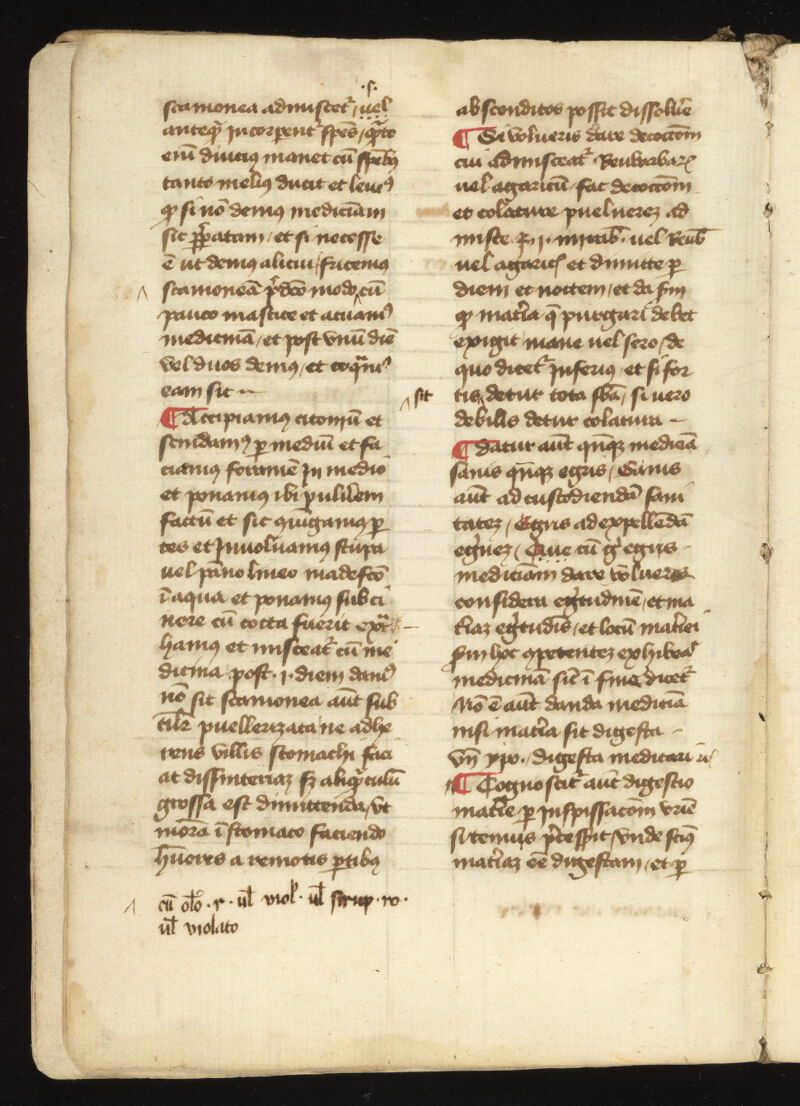 .s.
scamonea admiscet᷑, uel
anteq̃ incorperent᷑ sp̃es, q̃to
eni᷑ diuti᷒ manet cũ sp̃eb᷒
tanto meli᷒ ducit et leui᷒
q̃ si nō demus mediciñam
sic p̃paratam, et si necesse
ē ut demus alicui, fricemus
scamoneã p̃dc̃o modo, cũ
pauco mastice et acuam᷒
medicinã, et post vnũ diē
vel duos demus, et coq̃m᷒
eam sic
¶ Accipiamus citoniũ et
scindam᷒ p mediũ et fa
ciamus foramē in medio
et ponamus ibi puluerem
factũ et sic 9iũgamus p
tes et Inuoluamus stupa
uel pãno lineo madefc̃o
ĩ aqua et ponamus sub ci
nere cũ cocta fuerit ext᷑
hamus et misceat᷑ cũ me
dicina post .i. diem dam᷒
nō sit scamonea aũt sub
tilr̃ puellerizata ne adhe
rens villis stomachi faci
at dissinteriaz sz aliq̃tulũ
grossa est dimittenda, vt
morã ĩ stomaco faciendo
hũores a remotis ptib᷒
cũ oleo .r. ul̃ viol̃. ul̃ sirup. ro.
ul̃ violato
absconditos possit dissolũe
¶ Si volueris dare decoctõm
cui admisceat᷑ Reubarbar᷑
uel agaricũ, fac decoctõm
et colature puluerez ad
misce ℥. i. mirab̃. uel Reub̃
uel agaric᷑ et dimitte p
diem et noctem, et da s̃m
q̃ mat̃ia q̃ purgari debet
exigit mane uel sero, de
quo dicet᷑ inferius et si for
sit
tis, detur tota sb̃a, si uero
debilis detur colatura
¶ Datur aũt qñq̃z medicĩa
sanis qñq̃z egris, Sanis
aũt ad custodiendã sani
tatez, Egris ad expellẽdã
egr̃nez, Que cũ g̃ egris
medicinam dare volueris
considera egritudinẽ, et ma
t̃iaz egritudĩs, et locũ mat̃iei
s̃m hoc 9petentez exhibeas
medicinã sic̃ ĩ fine dicet᷑
Nō ē aũt danda medicĩa
nisi mat̃ia sit digesta
Vñ ypo. digesta medicari
¶ Cognoscit᷑ aũt digestio
mat̃ie p inspissac̃om vrĩe
si tenuis p̃cessit, vnde sci᷒
mat̃iaz ee digestam, et p